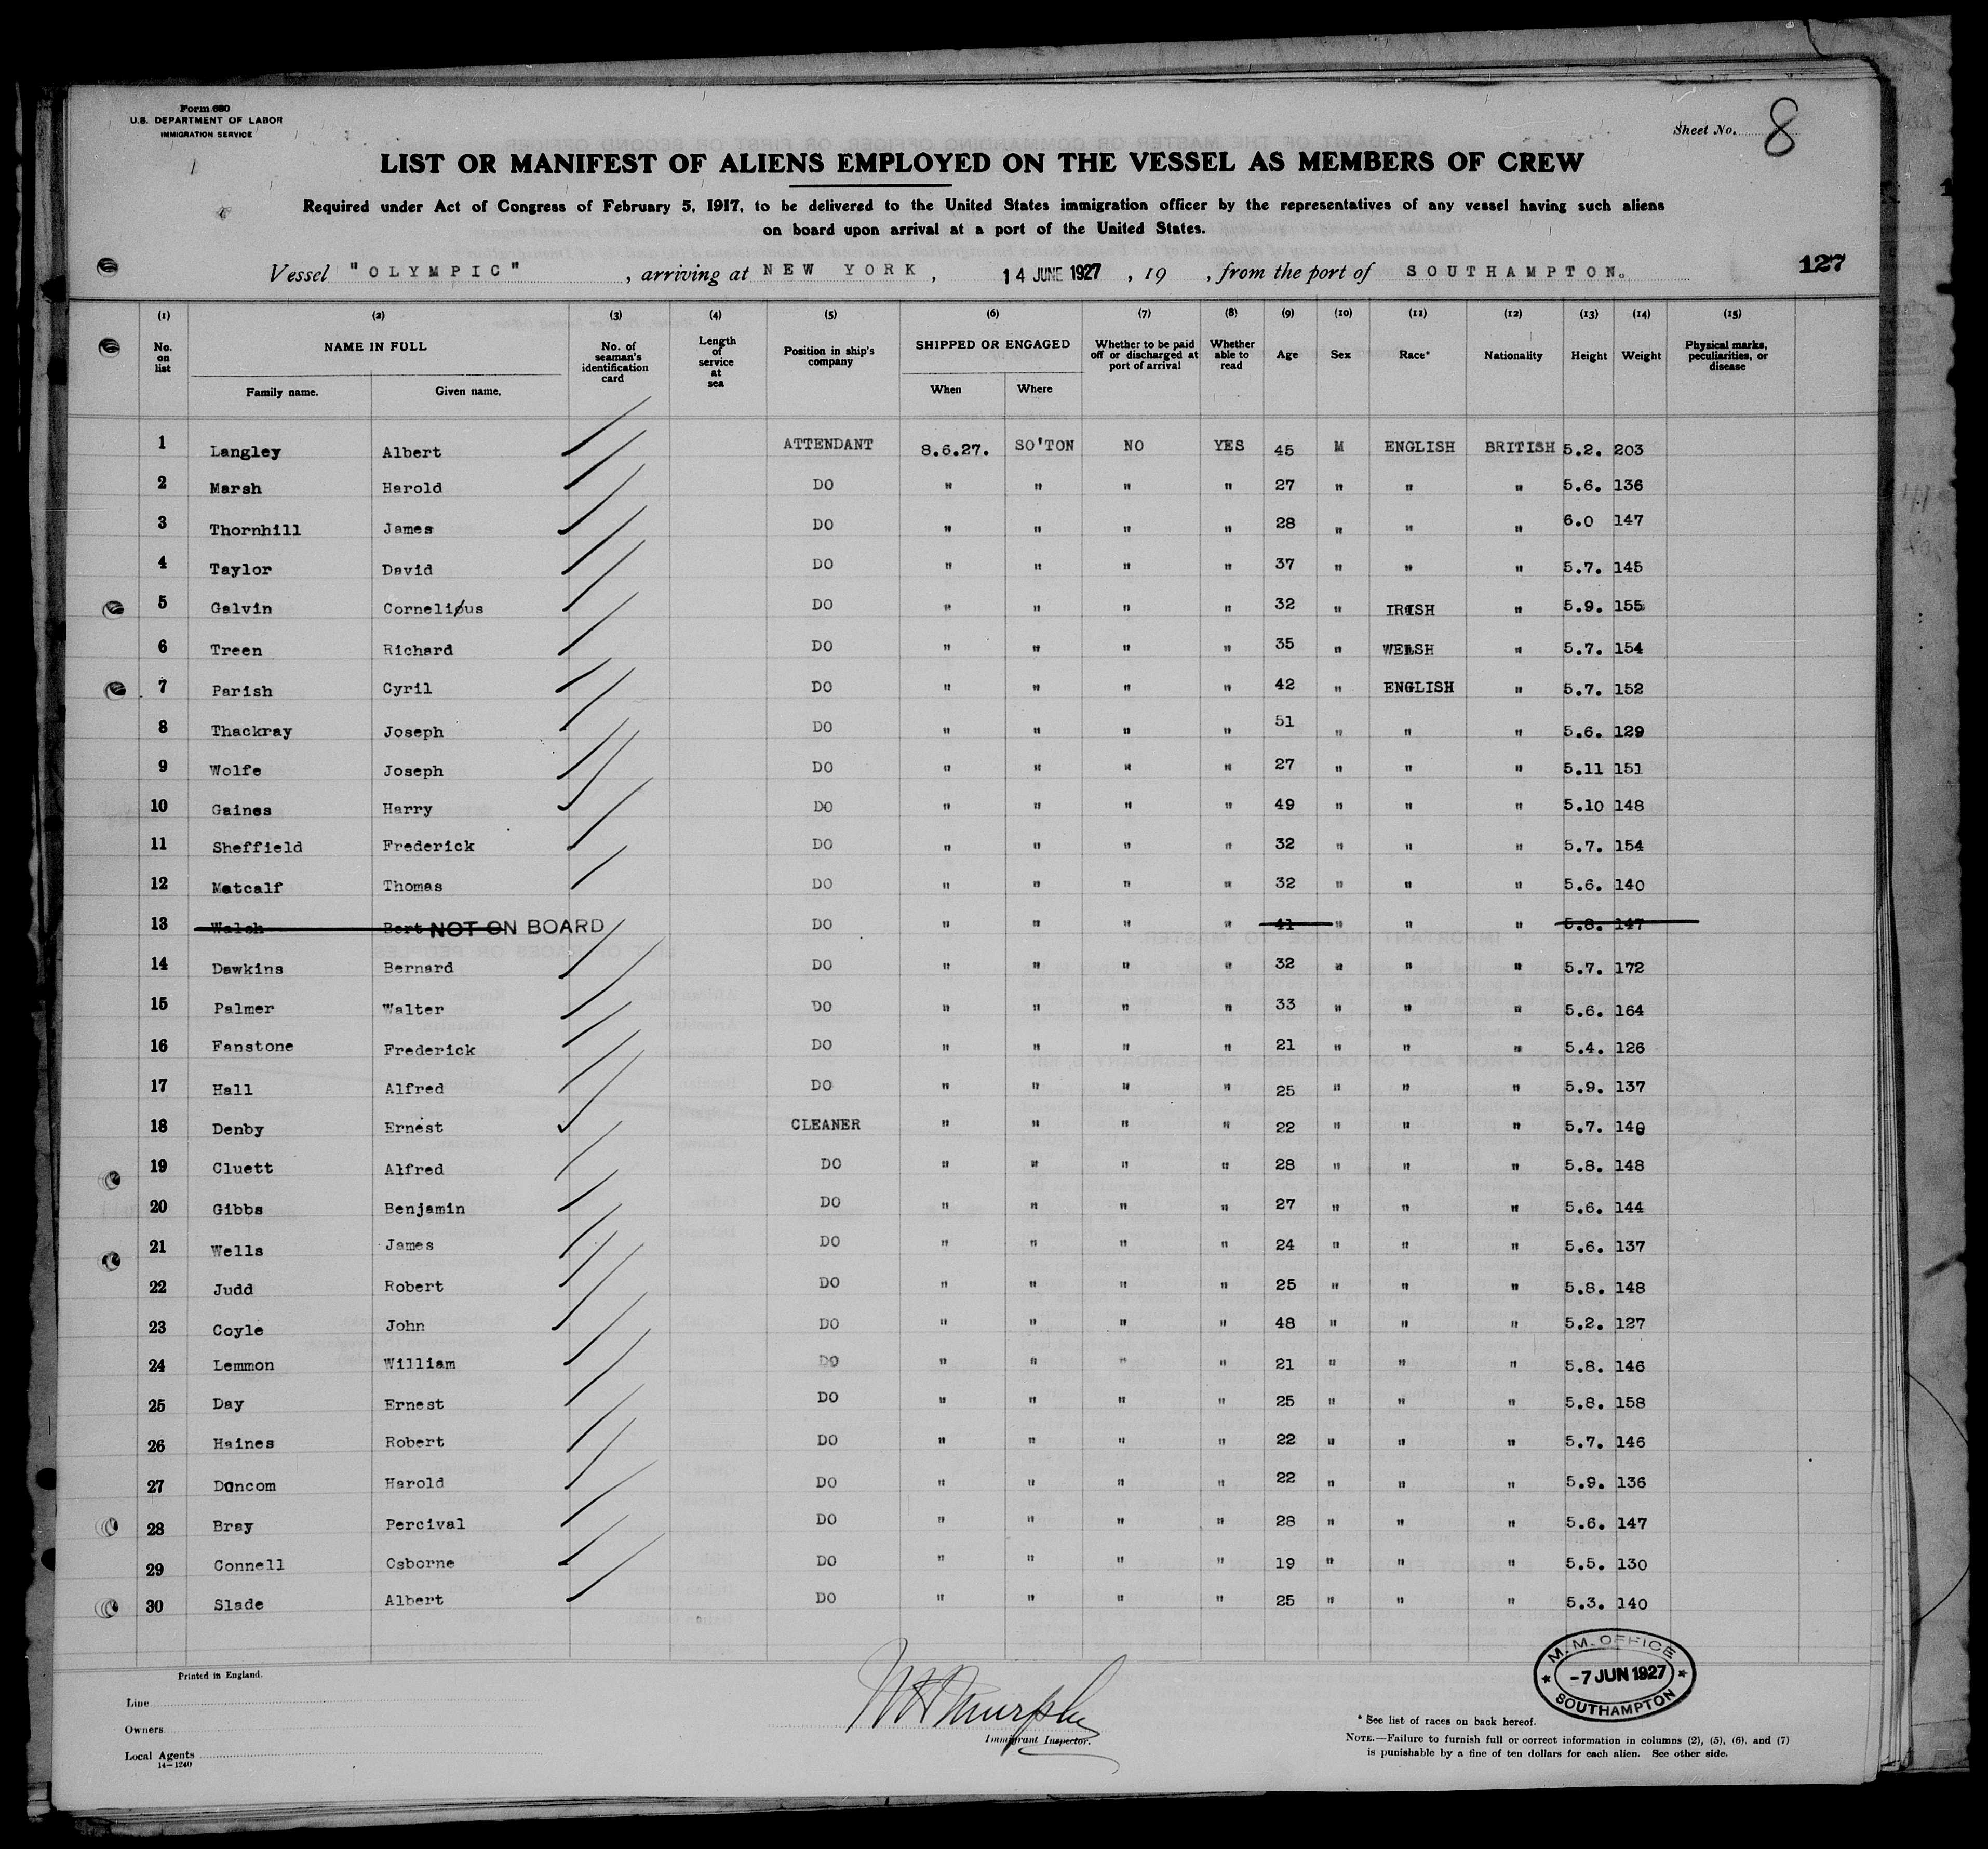 Form 680
U.S. DEPARTMENT OF LABOR
IMMIGRATION SERVICE
Sheet No. 8
LIST OR MANIFEST OF ALIENS EMPLOYED ON THE VESSEL AS MEMBERS OF CREW
Required under Act of Congress of February 5, 1917, to be delivered to the United States immigration officer by the representatives of any vessel having such aliens
on board upon arrival at a port of the United States.
Vessel "OLYMPIC", arriving at NEW YORK, 14 JUNE 1927, 19 , from the port of SOUTHAMPTON. 127
(1) (2) (3) (4) (5) (6) (7) (8) (9) (10) (11) (12) (13) (14) (15)
No. on list NAME IN FULL Family name. Given name. No. of seaman's identification card Length of service at sea Position in ship's company SHIPPED OR ENGAGED When Where Whether to be paid off or discharged at port of arrival Whether able to read Age Sex Race* Nationality Height Weight Physical marks, peculiarities, or disease
1 Langley Albert ATTENDANT 8.6.27. SO'TON NO YES 45 M ENGLISH BRITISH 5.2. 203
2 Marsh Harold DO " " " " 27 " " " 5.6. 136
3 Thornhill James DO " " " " 28 " " " 6.0 147
4 Taylor David DO " " " " 37 " " " 5.7. 145
5 Galvin Cornelious DO " " " " 32 " IRISH " 5.9. 155
6 Treen Richard DO " " " " 35 " WELSH " 5.7. 154
7 Parish Cyril DO " " " " 42 " ENGLISH " 5.7. 152
8 Thackray Joseph DO " " " " 51 " " " 5.6. 129
9 Wolfe Joseph DO " " " " 27 " " " 5.11 151
10 Gaines Harry DO " " " " 49 " " " 5.10 148
11 Sheffield Frederick DO " " " " 32 " " " 5.7. 154
12 Metcalf Thomas DO " " " " 32 " " " 5.6. 140
13 Walsh Bert NOT ON BOARD DO " " " " 41 " " " 5.8. 147
14 Dawkins Bernard DO " " " " 32 " " " 5.7. 172
15 Palmer Walter DO " " " " 33 " " " 5.6. 164
16 Fanstone Frederick DO " " " " 21 " " " 5.4. 126
17 Hall Alfred DO " " " " 25 " " " 5.9. 137
18 Denby Ernest CLEANER " " " " 22 " " " 5.7. 140
19 Cluett Alfred DO " " " " 28 " " " 5.8. 148
20 Gibbs Benjamin DO " " " " 27 " " " 5.6. 144
21 Wells James DO " " " " 24 " " " 5.6. 137
22 Judd Robert DO " " " " 25 " " " 5.8. 148
23 Coyle John DO " " " " 48 " " " 5.2. 127
24 Lemmon William DO " " " " 21 " " " 5.8. 146
25 Day Ernest DO " " " " 25 " " " 5.8. 158
26 Haines Robert DO " " " " 22 " " " 5.7. 146
27 Duncom Harold DO " " " " 22 " " " 5.9. 136
28 Bray Percival DO " " " " 28 " " " 5.6. 147
29 Connell Osborne DO " " " " 19 " " " 5.5. 130
30 Slade Albert DO " " " " 25 " " " 5.3. 140
Printed in England.
Line
Owners
Local Agents
14-1240
Murphy
Immigrant Inspector.
M.M. OFFICE
-7 JUN 1927
SOUTHAMPTON
* See list of races on back hereof.
NOTE.—Failure to furnish full or correct information in columns (2), (5), (6), and (7)
is punishable by a fine of ten dollars for each alien. See other side.